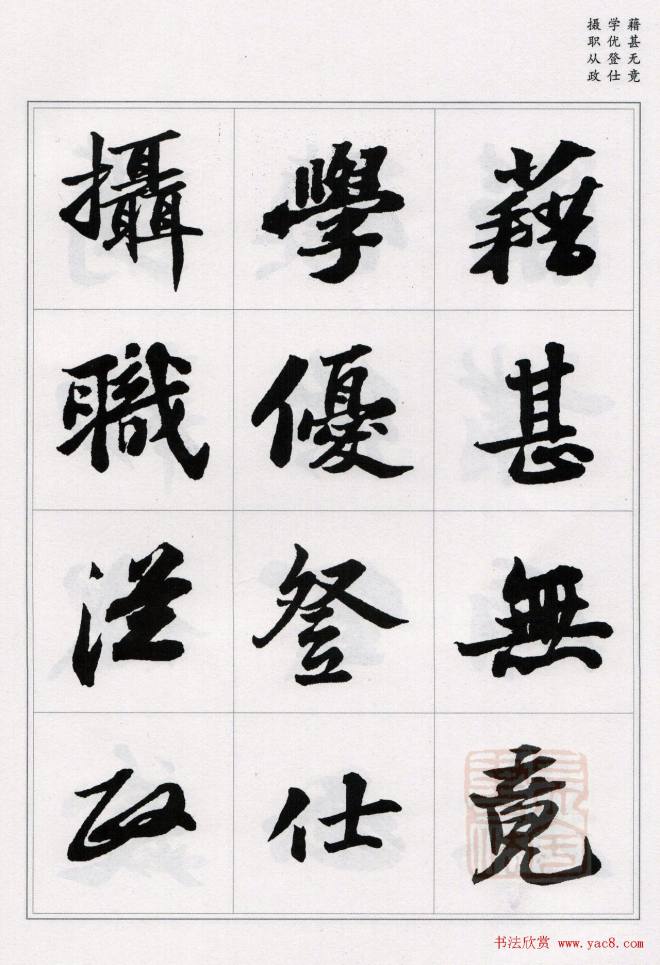 藉甚无竟
学优登仕
摄职从政
藉甚無竟
學優登仕
攝職從政
书法欣赏 www.yac8.com